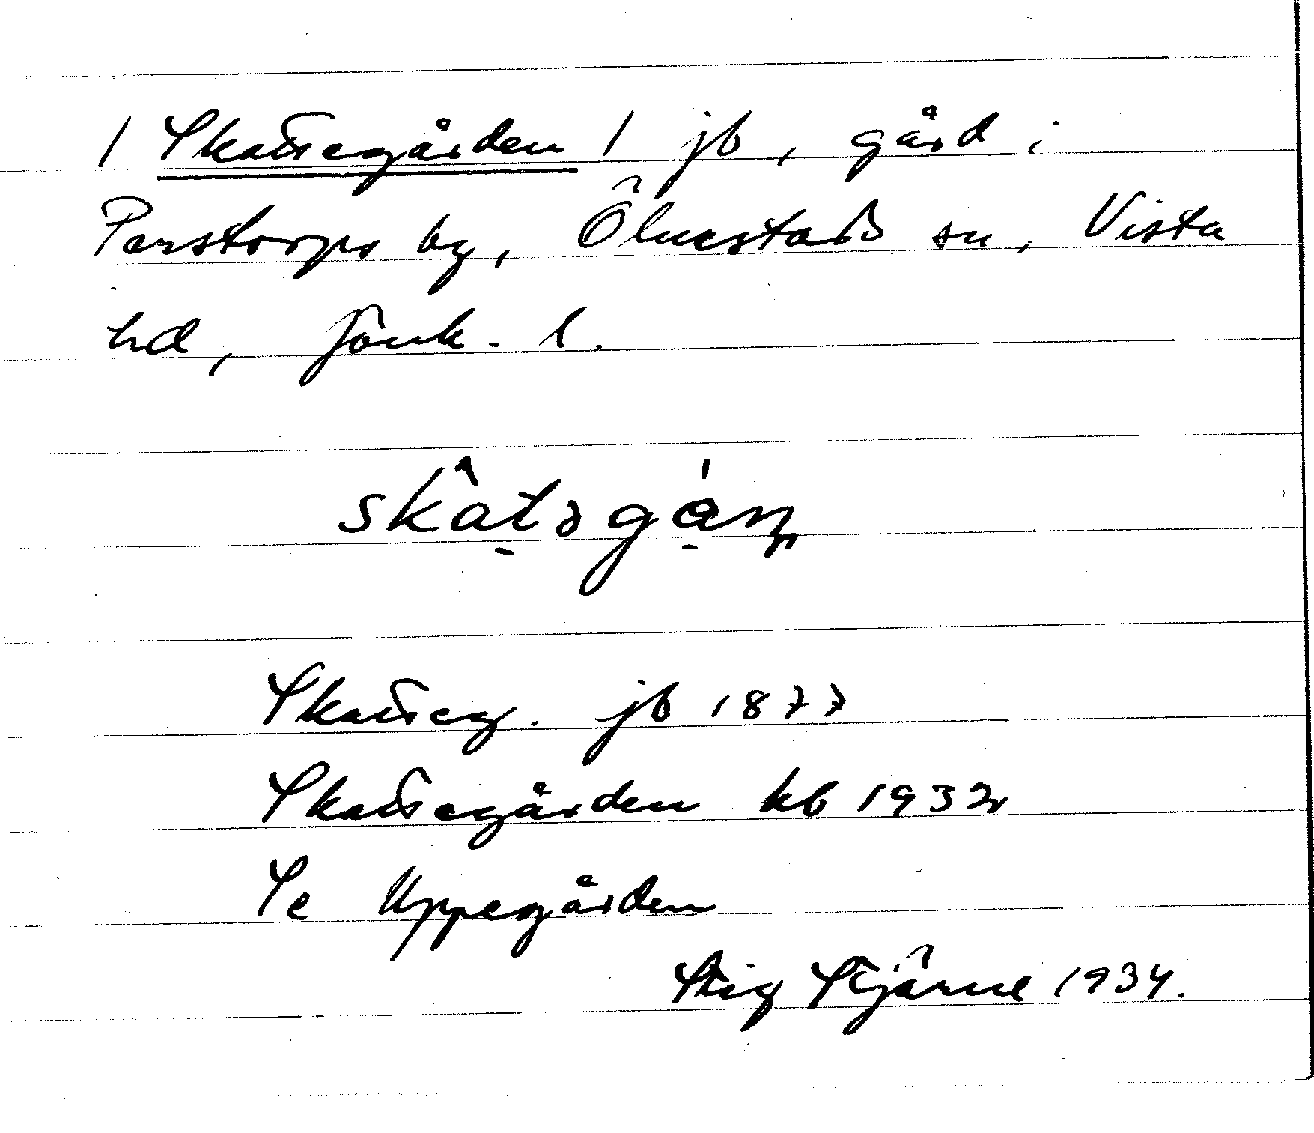 / Skattegården / jb, gård i
Perstorps by, Ölmestads sn, Vista
hd, Jönk. l.
skatəgạ́n̥
Skatteg. jb 1877
Skattegården kb 1932
Se Uppegården
Stig Stjärne 1934.